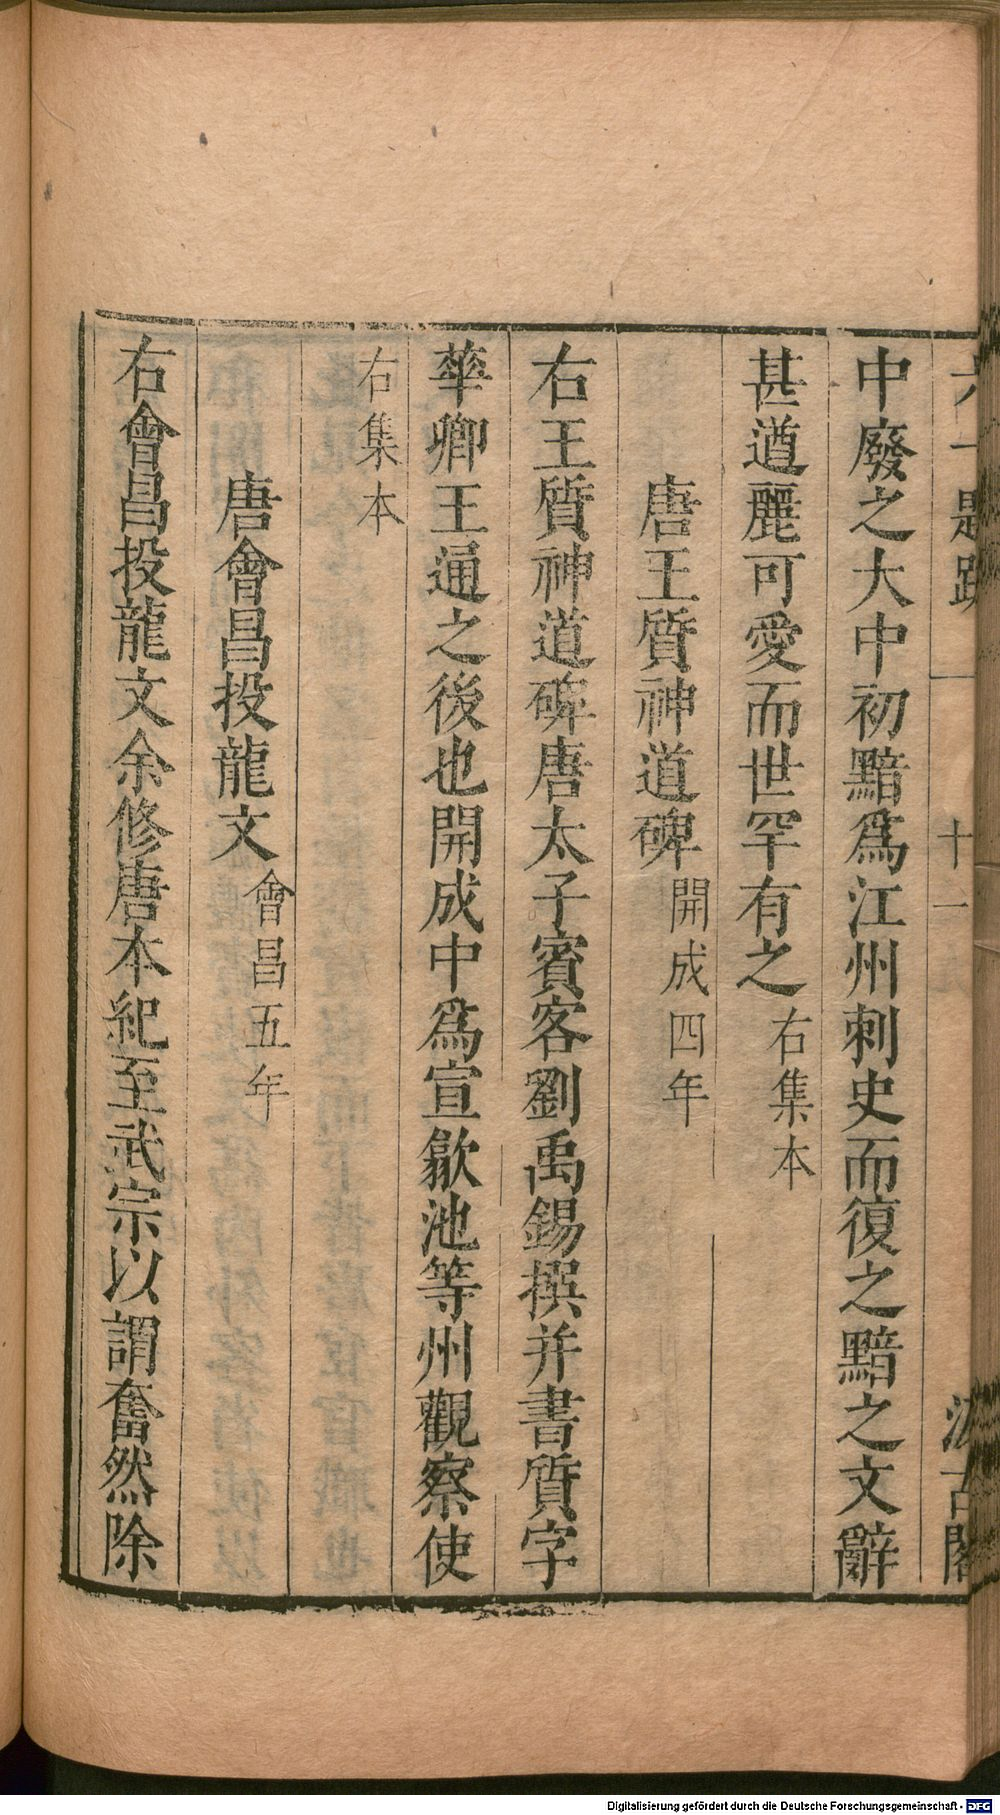 中廢之大中初黯爲江州刺史而復之黯之文辭
甚遒麗可愛而世罕有之右集本
唐王質神道碑開成四年
右王質神道碑唐太子賓客劉禹錫撰并書質字
華卿王通之後也開成中爲宣歙池等州觀察使
右集本
唐會昌投龍文會昌五年
右會昌投龍文余修唐本紀至武宗以謂奮然除
十一
Digitalisierung gefördert durch die Deutsche Forschungsgemeinschaft - DFG